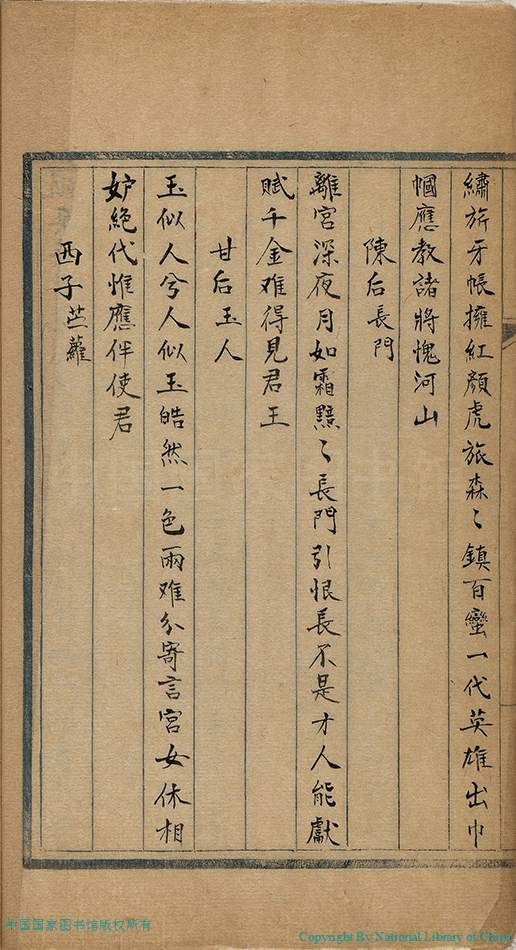 繡旂牙帳擁紅顏虎旅森〻鎮百蠻一代英雄出巾
幗應教諸將愧河山
陳后長門
離宮深夜月如霜黯〻長門引恨長不是才人能獻
賦千金难得見君王
甘后玉人
玉似人兮人似玉皓然一色兩难分寄言宮女休相
妒絕代惟應伴使君
西子苎蘿
中国国家图书馆版权所有
Copyright By National Library of China